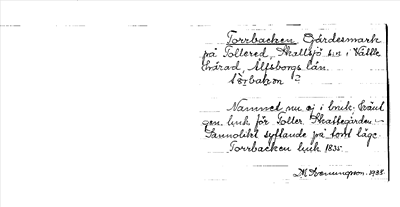 Torrbacken Gärdesmark
på Tollered, Skallsjö s:n i Vättle
härad, Älfsborgs län.
Namnet nu ej i bruk.
gen. bruk för Toller. Skattegården. –
Sannolikt syftande på torrt läge.
Torrbacken bruk 1835.
1933.